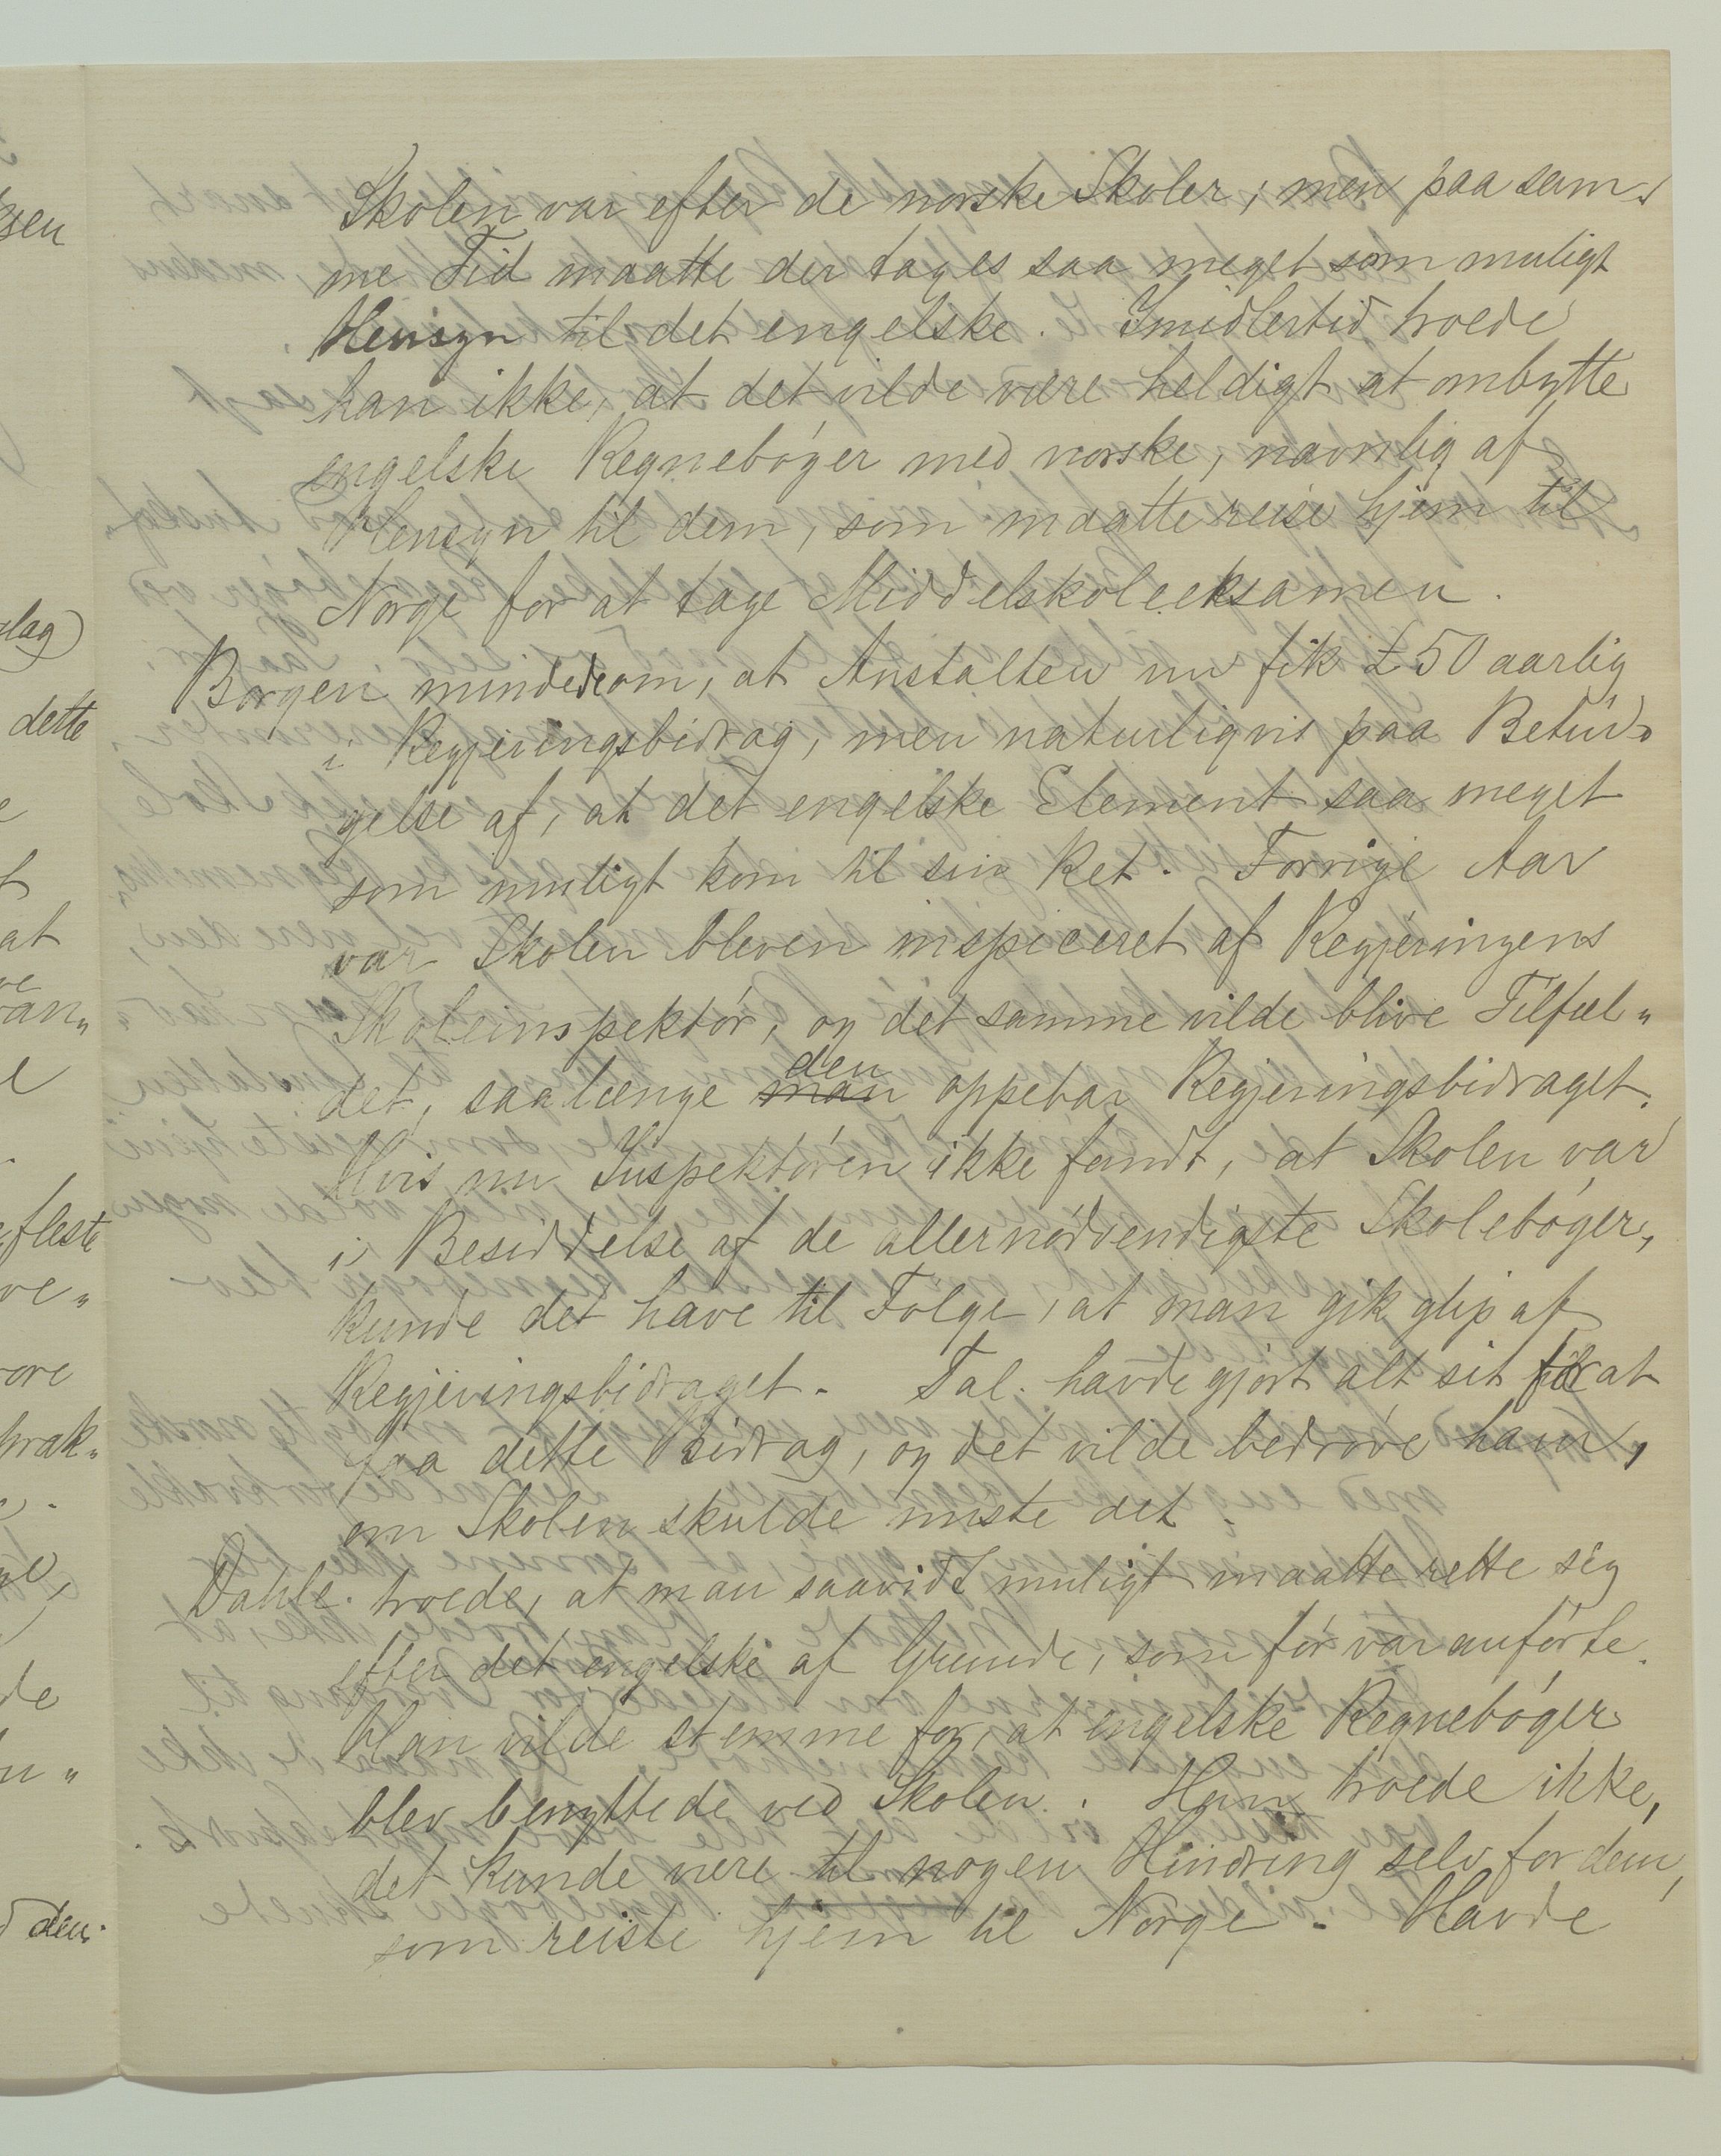 Skolen var efter de norske Skoler, men paa sam-
me Tid maatte der tages saa meget som muligt
Hensyn til det engelske. Imidlertid troede
han ikke, at det vilde være heldigt at ombytte
engelske Regnebóger med norske, navnlig af
Hensyn til dem, som maatte reise hjem til
Norge for at tage Middelskoleeksamen.
Borgen mindede om, at Anstalten nu fik £50 aarlig
i Regjeringsbidrag, men naturligvis paa Betin-
gelse af, at det engelske Element saa meget
som muligt kom til sin Ret. Forrige Aar
var Skolen bleven inspiceret af Regjeringens
Skoleinspektór, og det samme vilde blive Tilfæl„
det, saalænge man den oppebar Regjeringsbidraget.
Hvis nu Inspektóren ikke fandt, at Skolen var
i Besiddelse af de allernódvendigste Skolebóger,
kunde det have til Fólge, at man gik glip af
Regjeringsbidraget. Tal. havde gjort alt sit for at
faa dette Bidrag, og det vilde bedróve ham,
om Skolen skulde miste det.
Dahle troede, at man saavidt muligt maatte rette sig
efter det engelske af Grunde, som fór var anfórte.
Han vilde stemme for, at engelske Regnebóger
blev benyttede ved Skolen. Han troede ikke,
det kunde være til nogen Hindring selv for dem,
som reiste hjem til Norge. Havde
sen
slag)
dette
e
t
at
ve
ran„
e
fleste
ve„
vore
prak„
de
n„
den.